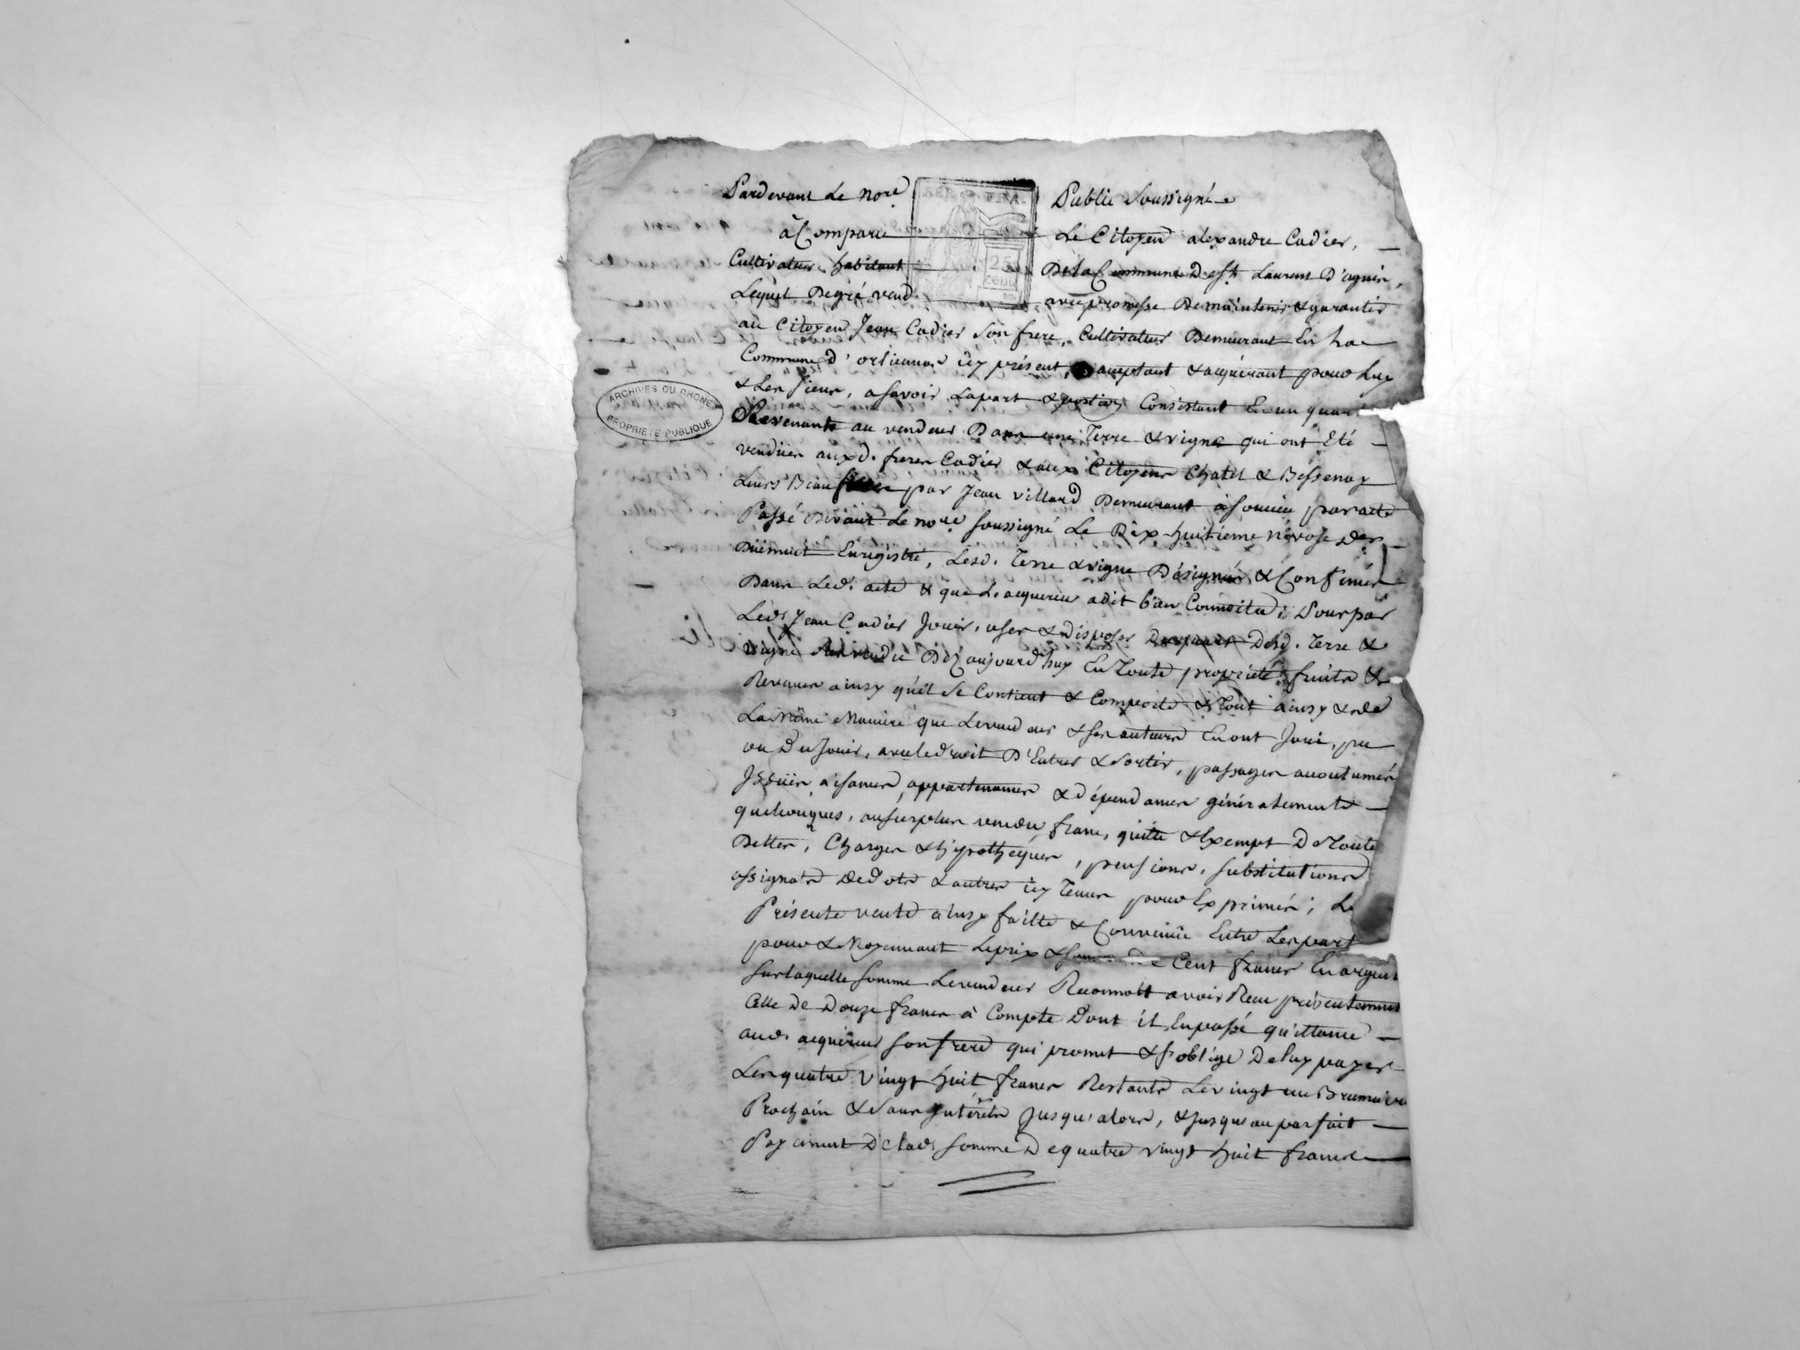 Pardevant Le no.re Public Soussigné
à Comparu Le Citoyen alexandre Cadier,
Cultivateur habitant De la Commune De st. Laurent D'agnir,
Lequel De gré vend avec promesse De maintenir & garantir
au Citoyen Jean Cadier Son frere, Cultivateur Demeurant En La
Commune d'orlienner icy présent, acceptant & acquérant pour Luy
& Les Siens, a savoir La part & portion Consistant En un quart
Revenante au vendeur Dans une Terre & vigne qui ont Eté
venduës aux d. freres Cadier & aux Citoyens Chatel & Bessenay
Leurs Beaufreres par Jean villard Demeurant à Soucieu par acte
Passé Devant Le no.re soussigné Le Dix-huitieme nivose Der
Duement Enregistré, Lesd. Terre & vigne Désignés & Confinés
Dans Led. acte & que L'acquereur a dit bien Connoitre; Pour par
Led. Jean Cadier Jouir, user & disposer Desd. Terre &
vigne Dez aujourd'huy En Toute propriété, fruits &
Revenus ainsy qu'il Se Contient & Comporte & Tout ainsy & de
La même Maniere que Le vendeur & ses auteurs En ont Joui, pu
ou Du Jouir, avec Le droit D'Entrer & Sortir, passages accoutumés
Issuës, aisances, appartenances & dépendances généralement
quelconques, au surplus vendu franc, quitte & Exempt De Toute
Dettes, Charges & hypotheques, pensions, substitutions
assignats De Dote & autres icy Tenus pour Exprimés; La
Présente vente ainsy faitte & Convenuë Entre Les part
pour & Moyennant Le prix & somme de Cent francs En argent
Sur laquelle somme Le vendeur Reconnoît avoir Reçu présentement
Celle De Douze francs à Compte Dont il En passé quittance
aud. acquéreur son frere qui promet & s'oblige De luy payer
Les quatre vingt huit francs Restants Le vingt un Brumaire
Prochain & Sans Intérêts Jusqu'alors, & jusqu'au parfait
Payement De lad. somme De quatre vingt huit francs
ARCHIVES DU RHONE
PROPRIÉTÉ PUBLIQUE
25
CEN.